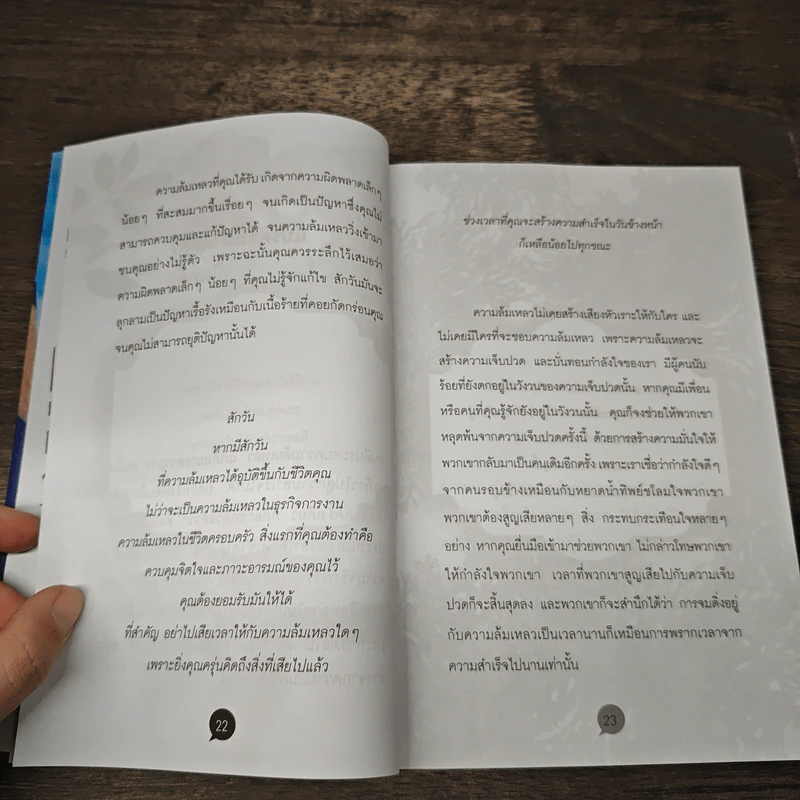 ความล้มเหลวที่คุณได้รับ เกิดจากความผิดพลาดเล็กๆ
น้อยๆ ที่สะสมมากขึ้นเรื่อยๆ จนเกิดเป็นปัญหาซึ่งคุณไม่
สามารถควบคุมและแก้ปัญหาได้ จนความล้มเหลววิ่งเข้ามา
ชนคุณอย่างไม่รู้ตัว เพราะฉะนั้นคุณควรระลึกไว้เสมอว่า
ความผิดพลาดเล็กๆ น้อยๆ ที่คุณไม่รู้จักแก้ไข สักวันมันจะ
ลุกลามเป็นปัญหาเรื้อรังเหมือนกับเนื้อร้ายที่คอยกัดกร่อนคุณ
จนคุณไม่สามารถยุติปัญหานั้นได้
สักวัน
หากมีสักวัน
ที่ความล้มเหลวได้อุบัติขึ้นกับชีวิตคุณ
ไม่ว่าจะเป็นความล้มเหลวในธุรกิจการงาน
ความล้มเหลวในชีวิตครอบครัว สิ่งแรกที่คุณต้องทำคือ
ควบคุมจิตใจและภาวะอารมณ์ของคุณไว้
คุณต้องยอมรับมันให้ได้
ที่สำคัญ อย่าไปเสียเวลาให้กับความล้มเหลวใดๆ
เพราะยิ่งคุณครุ่นคิดถึงสิ่งที่เสียไปแล้ว
22
ช่วงเวลาที่คุณจะสร้างความสำเร็จในวันข้างหน้า
ก็เหลือน้อยไปทุกขณะ
ความล้มเหลวไม่เคยสร้างเสียงหัวเราะให้กับใคร และ
ไม่เคยมีใครที่จะชอบความล้มเหลว เพราะความล้มเหลวจะ
สร้างความเจ็บปวด และบั่นทอนกำลังใจของเรา มีผู้คนนับ
ร้อยที่ยังตกอยู่ในวังวนของความเจ็บปวดนั้น หากคุณมีเพื่อน
หรือคนที่คุณรู้จักยังอยู่ในวังวนนั้น คุณก็จงช่วยให้พวกเขา
หลุดพ้นจากความเจ็บปวดครั้งนี้ ด้วยการสร้างความมั่นใจให้
พวกเขากลับมาเป็นคนเดิมอีกครั้ง เพราะเราเชื่อว่ากำลังใจดีๆ
จากคนรอบข้างเหมือนกับหยาดน้ำทิพย์ชโลมใจพวกเขา
พวกเขาต้องสูญเสียหลายๆ สิ่ง กระทบกระเทือนใจหลายๆ
อย่าง หากคุณยื่นมือเข้ามาช่วยพวกเขา ไม่กล่าวโทษพวกเขา
ให้กำลังใจพวกเขา เวลาที่พวกเขาสูญเสียไปกับความเจ็บ
ปวดก็จะสิ้นสุดลง และพวกเขาก็จะสำนึกได้ว่า การจมดิ่งอยู่
กับความล้มเหลวเป็นเวลานานก็เหมือนการพรากเวลาจาก
ความสำเร็จไปนานเท่านั้น
23